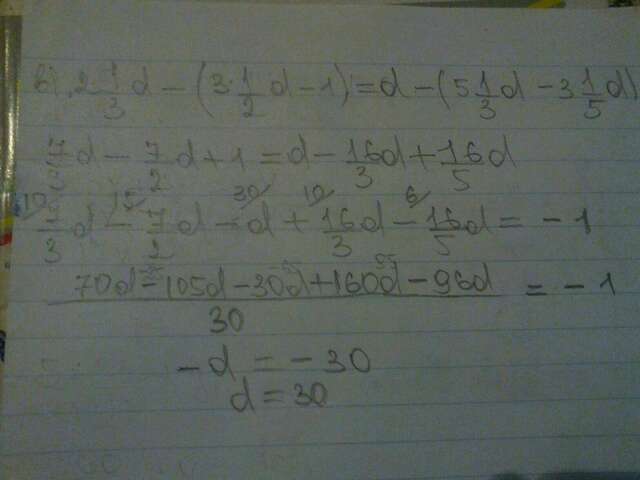 в) 2 1/3 d - (3 1/2 d - 1) = d - (5 1/3 d - 3 1/5 d)
7/3 d - 7/2 d + 1 = d - 16/3 d + 16/5 d
7/3 d - 7/2 d - d + 16/3 d - 16/5 d = - 1
(70d - 105d - 30d + 160d - 96d)/30 = - 1
- d = - 30
d = 30